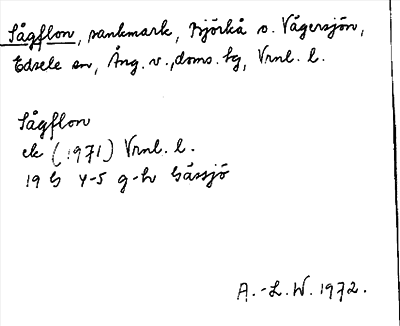 Sågflon, sankmark, Björkå o. Vågersjön,
Edsele sn, Ång. v., doms. hg, Vrnl. l.
Sågflon
ek (1971) Vrnl. l.
19 G 4-5 g-h Gåssjö
A.-L.W. 1972.